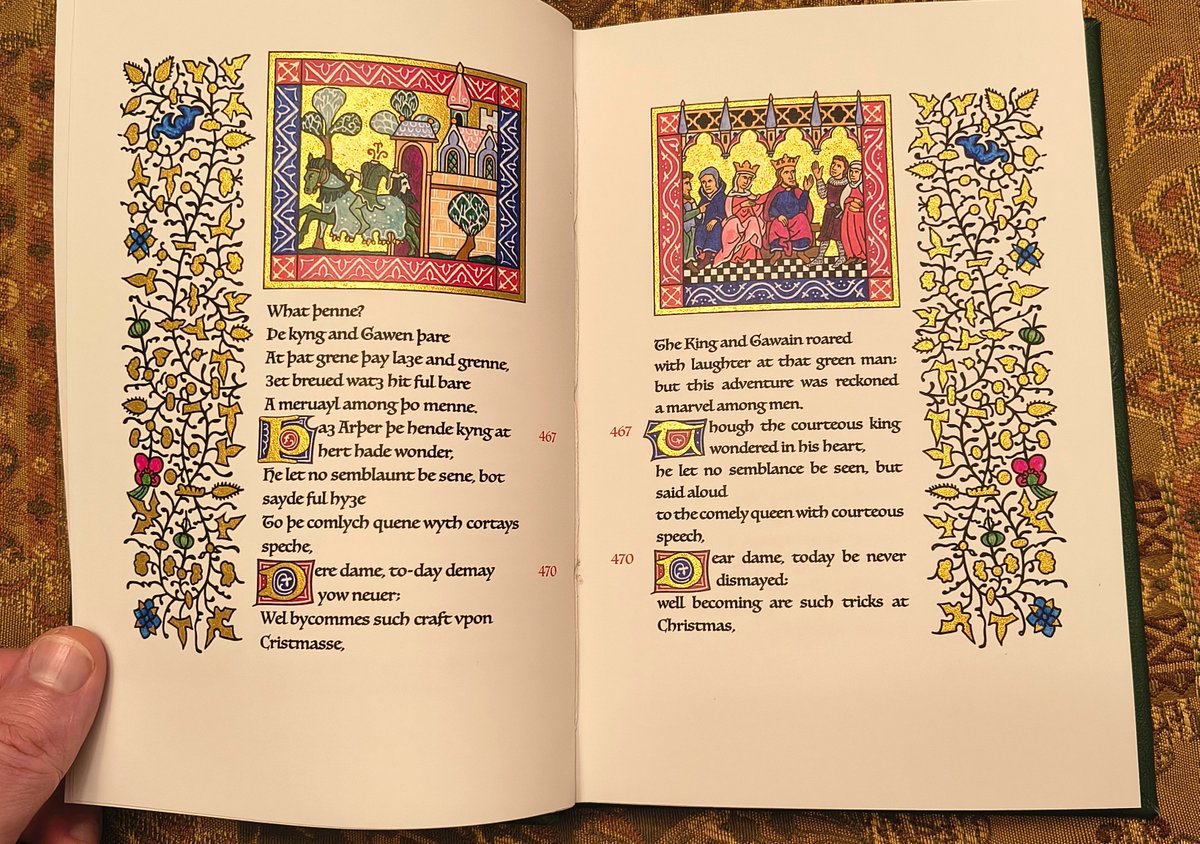 What þenne?
Þe kyng and Gawen þare
At þat grene þay laȝe and grenne,
Ȝet breued watȝ hit ful bare
A meruayl among þo menne.
Þaȝ Arþer þe hende kyng at 467
hert hade wonder,
He let no semblaunt be sene, bot
sayde ful hyȝe
To þe comlych quene wyth cortays
speche,
Dere dame, to-day demay 470
yow neuer:
Wel bycommes such craft vpon
Cristmasse,
The King and Gawain roared
with laughter at that green man:
but this adventure was reckoned
a marvel among men.
467 Though the courteous king
wondered in his heart,
he let no semblance be seen, but
said aloud
to the comely queen with courteous
speech,
470 Dear dame, today be never
dismayed:
well becoming are such tricks at
Christmas,